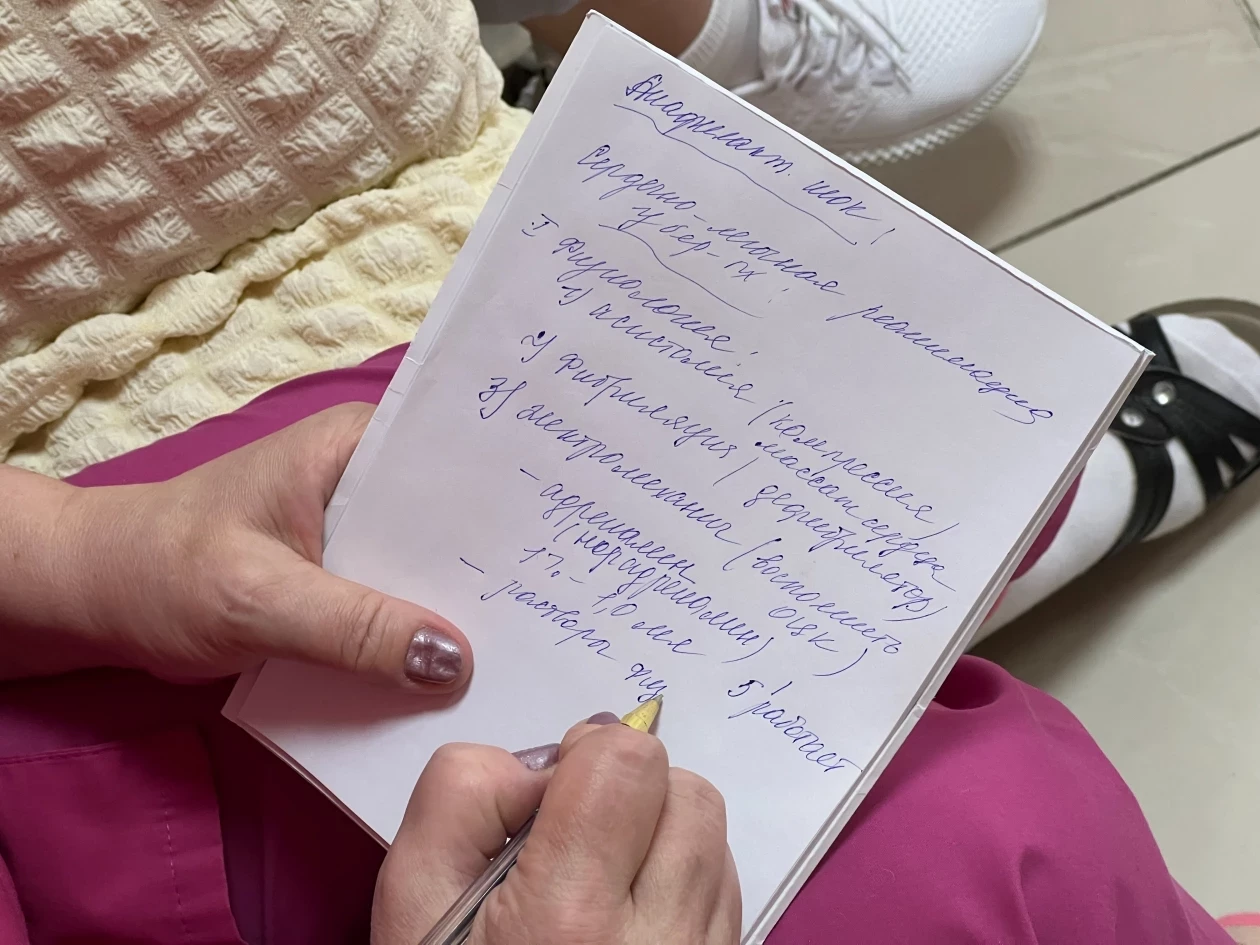 Анафилакт. шок!
Сердечно-легочная реанимация
у бер-ых!
I Физиология!
1) асистолия (компрессия,
массаж сердца
2) фибриляция / дефибрилятор)
3) электромеханич (восполнить
ОЦК)
- адреналин
(норадреналин)
1% - 1,0 мл 5' работает
- раствора физ